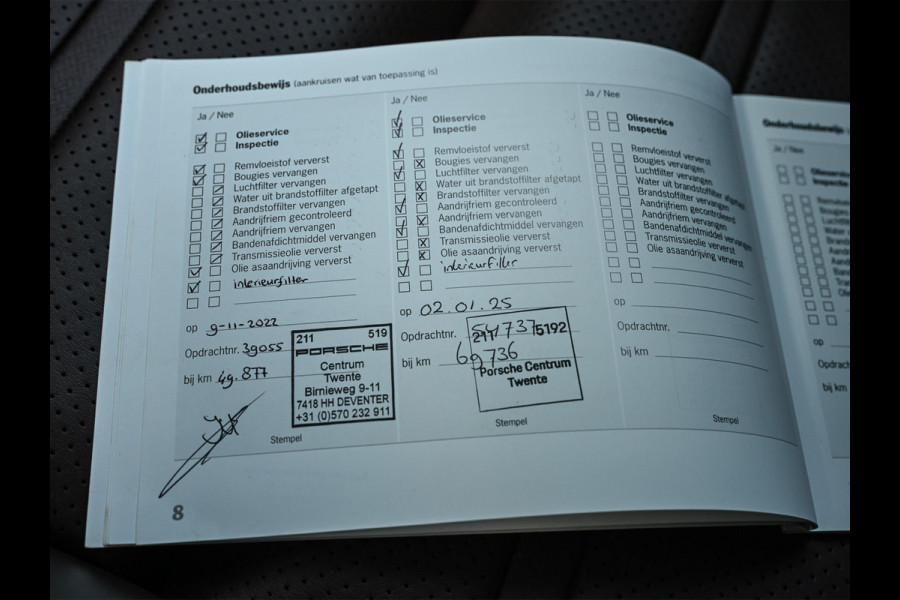 Onderhoudsbewijs (aankruisen wat van toepassing is)
Ja / Nee
Olieservice
Inspectie
Remvloeistof ververst
Bougies vervangen
Luchtfilter vervangen
Water uit brandstoffilter afgetapt
Brandstoffilter vervangen
Aandrijfriem gecontroleerd
Aandrijfriem vervangen
Bandenafdichtmiddel vervangen
Transmissieolie ververst
Olie asaandrijving ververst
interieurfilter
op 9-11-2022
Opdrachtnr. 39055
bij km 49.877
211 519
PORSCHE
Centrum
Twente
Birnieweg 9-11
7418 HH DEVENTER
+31 (0)570 232 911
Stempel
Ja / Nee
Olieservice
Inspectie
Remvloeistof ververst
Bougies vervangen
Luchtfilter vervangen
Water uit brandstoffilter afgetapt
Brandstoffilter vervangen
Aandrijfriem gecontroleerd
Aandrijfriem vervangen
Bandenafdichtmiddel vervangen
Transmissieolie ververst
Olie asaandrijving ververst
interieurfilter
op 02.01.25
Opdrachtnr. 54737
bij km 69736
211 5192
Porsche Centrum
Twente
Stempel
Ja / Nee
Olieservice
Inspectie
Remvloeistof ververst
Bougies vervangen
Luchtfilter vervangen
Water uit brandstoffilter afgetapt
Brandstoffilter vervangen
Aandrijfriem gecontroleerd
Aandrijfriem vervangen
Bandenafdichtmiddel vervangen
Transmissieolie ververst
Olie asaandrijving ververst
op
Opdrachtnr.
bij km
Stempel
8
Onderhoudsbewijs
Ja / Nee
Olieservice
Inspectie
op
bij km